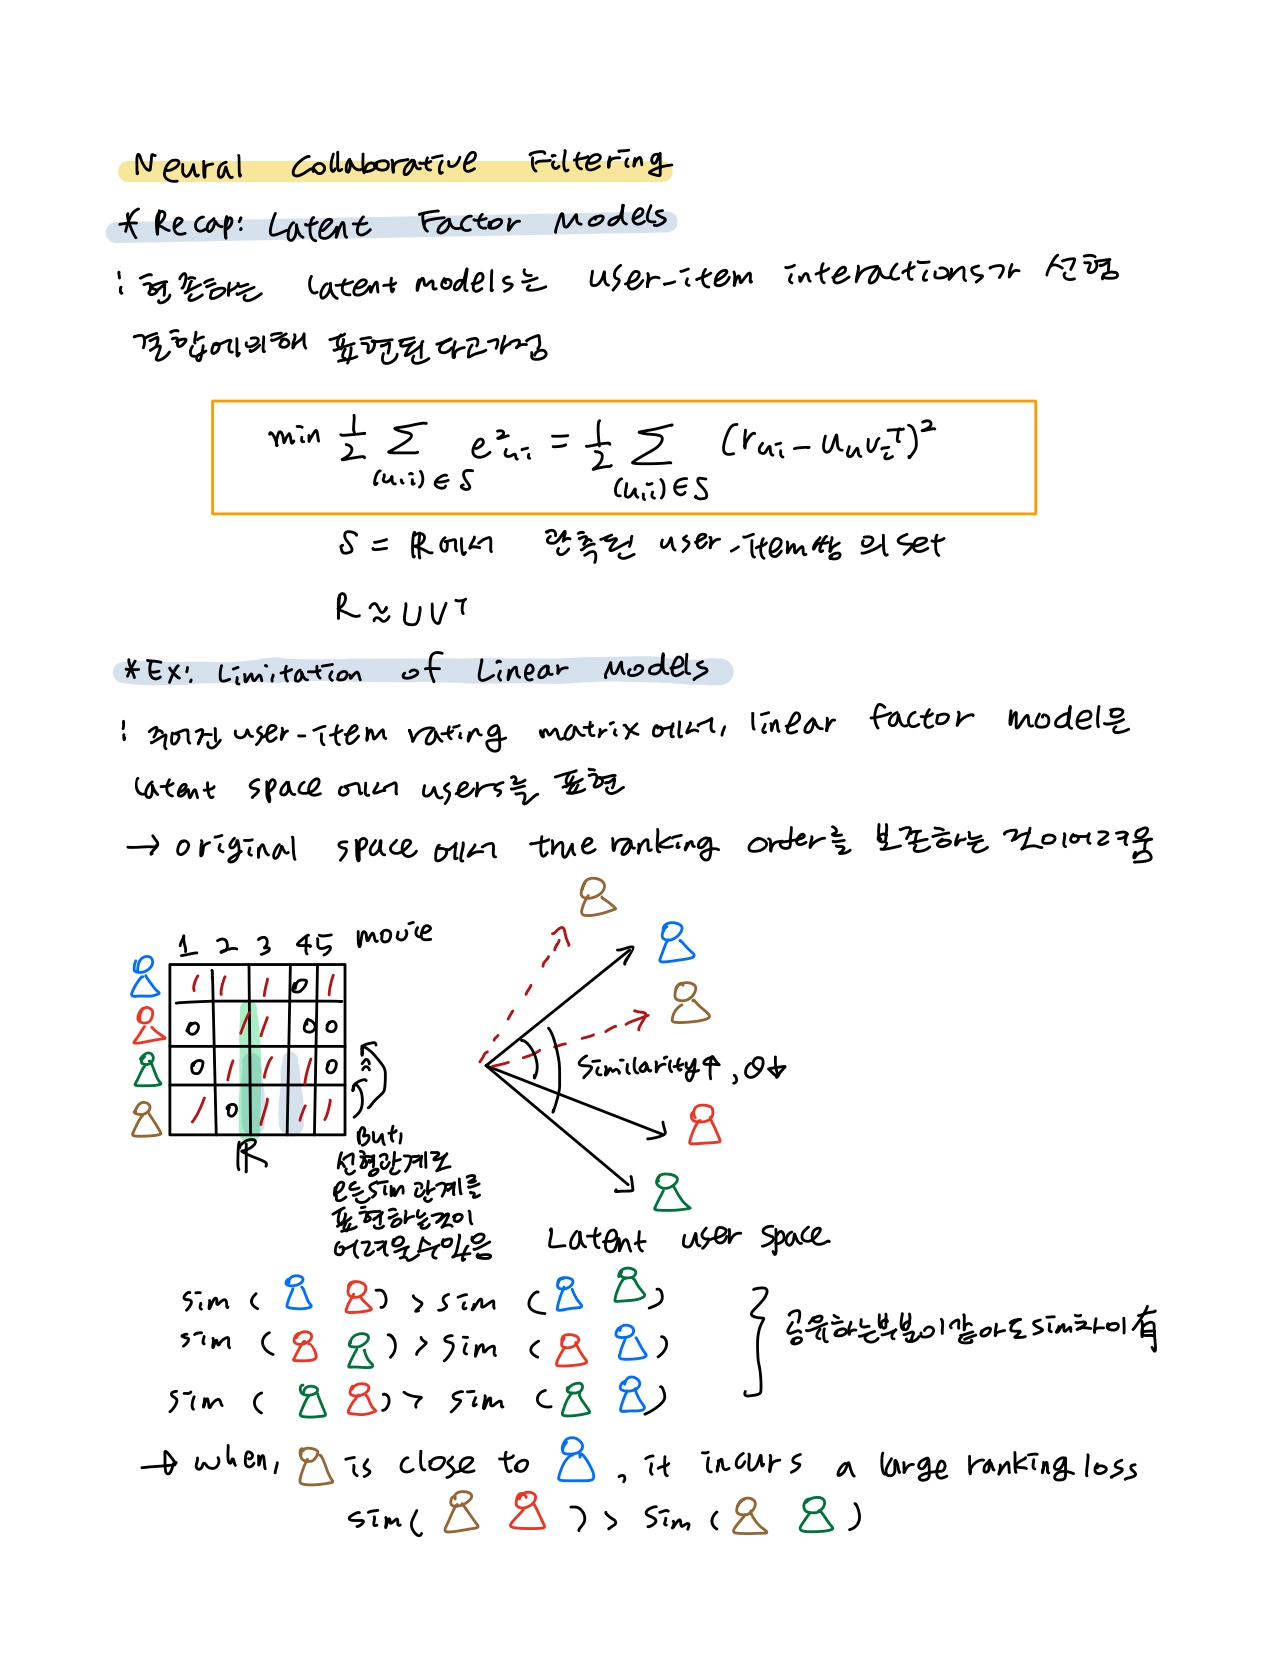 Neural Collaborative Filtering
* Recap: Latent Factor Models
: 현존하는 latent models는 user-item interactions가 선형
결합에 의해 표현된다고 가정
min 1/2 Σ_{(u,i)∈S} e²_{ui} = 1/2 Σ_{(u,i)∈S} (r_{ui} - u_u v_i^T)²
S = ℝ에서 관측된 user-item쌍의 set
R ≈ UV^T
* Ex: Limitation of Linear Models
: 주어진 user-item rating matrix에서, linear factor model은
latent space에서 users를 표현
→ original space에서 true ranking order를 보존하는 것이 어려움
1 2 3 4 5 movie
1 1 1 0 1
0 1 1 0 0
0 1 1 1 0
1 0 1 1 1
ℝ
But,
선형관계로
모든 sim 관계를
표현하는것이
어려울수있음
Similarity↑, θ↓
Latent user space
sim ( ) > sim ( )
sim ( ) > sim ( )
sim ( ) > sim ( )
} 공유하는부분이같아도 sim차이 有
→ when, is close to , it incurs a large ranking loss
sim( ) > sim ( )